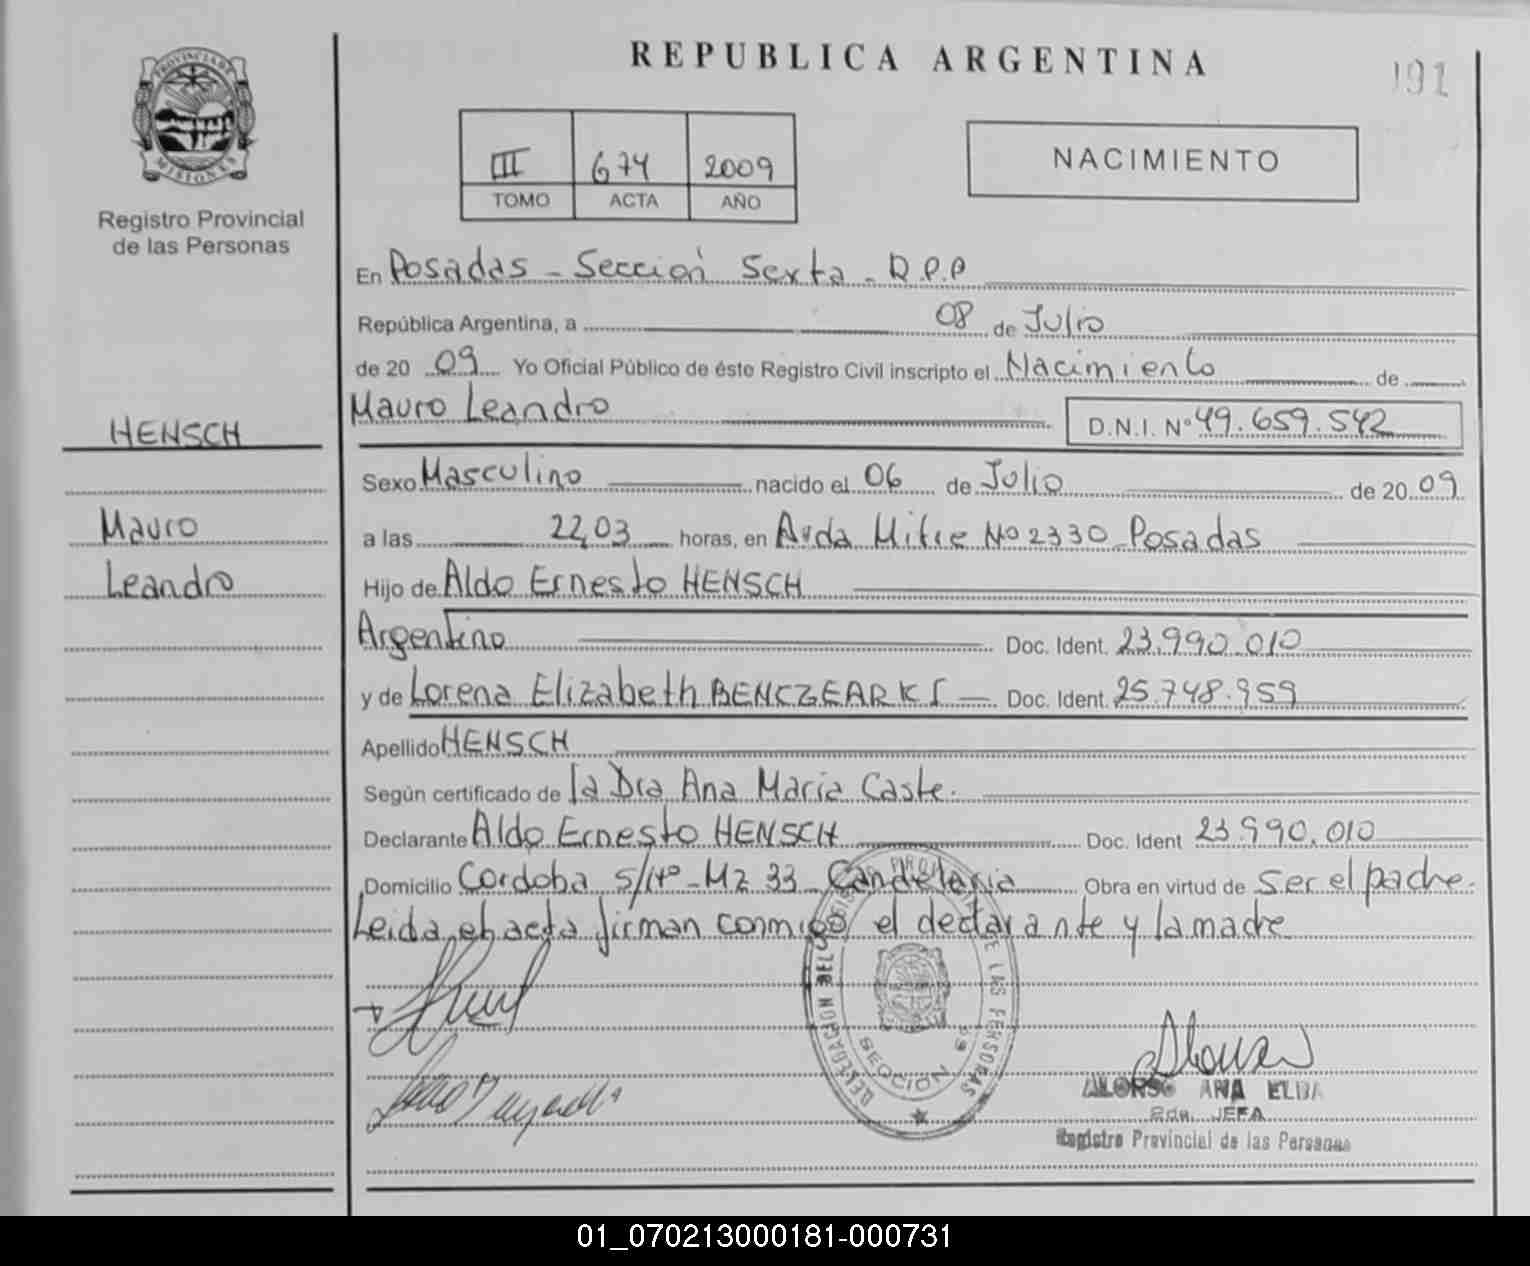 REPUBLICA ARGENTINA
191
PROVINCIA DE
MISIONES
Registro Provincial
de las Personas
III 674 2009
TOMO ACTA AÑO
NACIMIENTO
En Posadas - Sección Sexta - R.P.P
República Argentina, a 08 de Julio
de 20 09 Yo Oficial Público de éste Registro Civil inscripto el Nacimiento de
Mauro Leandro D.N.I. Nº 49.659.542
HENSCH
Mauro
Leandro
Sexo Masculino nacido el 06 de Julio de 20 09
a las 22,03 horas, en Avda Mitre Nº 2330 Posadas
Hijo de Aldo Ernesto HENSCH
Argentino Doc. Ident. 23.990.010
y de Lorena Elizabeth BENCZEARKI Doc. Ident. 25.748.959
Apellido HENSCH
Según certificado de la Dra Ana María Caste.
Declarante Aldo Ernesto HENSCH Doc. Ident 23.990.010
Domicilio Cordoba S/Nº - Mz 33 - Candelaria Obra en virtud de Ser el padre.
Leida el acta firman conmigo el declarante y la madre
DELEGACION DEL REGISTRO PROVINCIAL DE LAS PERSONAS
SECCION 6ª
ALONSO ANA ELBA
2da. JEFA
Registro Provincial de las Personas
01_070213000181-000731